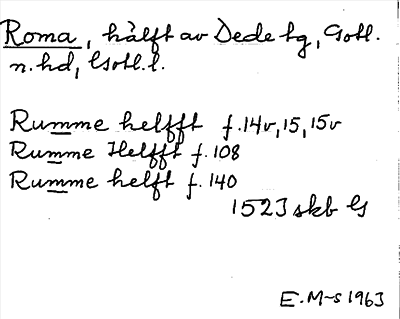 Roma, hälft av Dede tg, Gotl.
n. hd, Gotl. l.
Rumme helfft f. 14v, 15, 15v
Rumme Helfft f. 108
Rumme helft f. 140
1523 skb G
E. M-s 1963